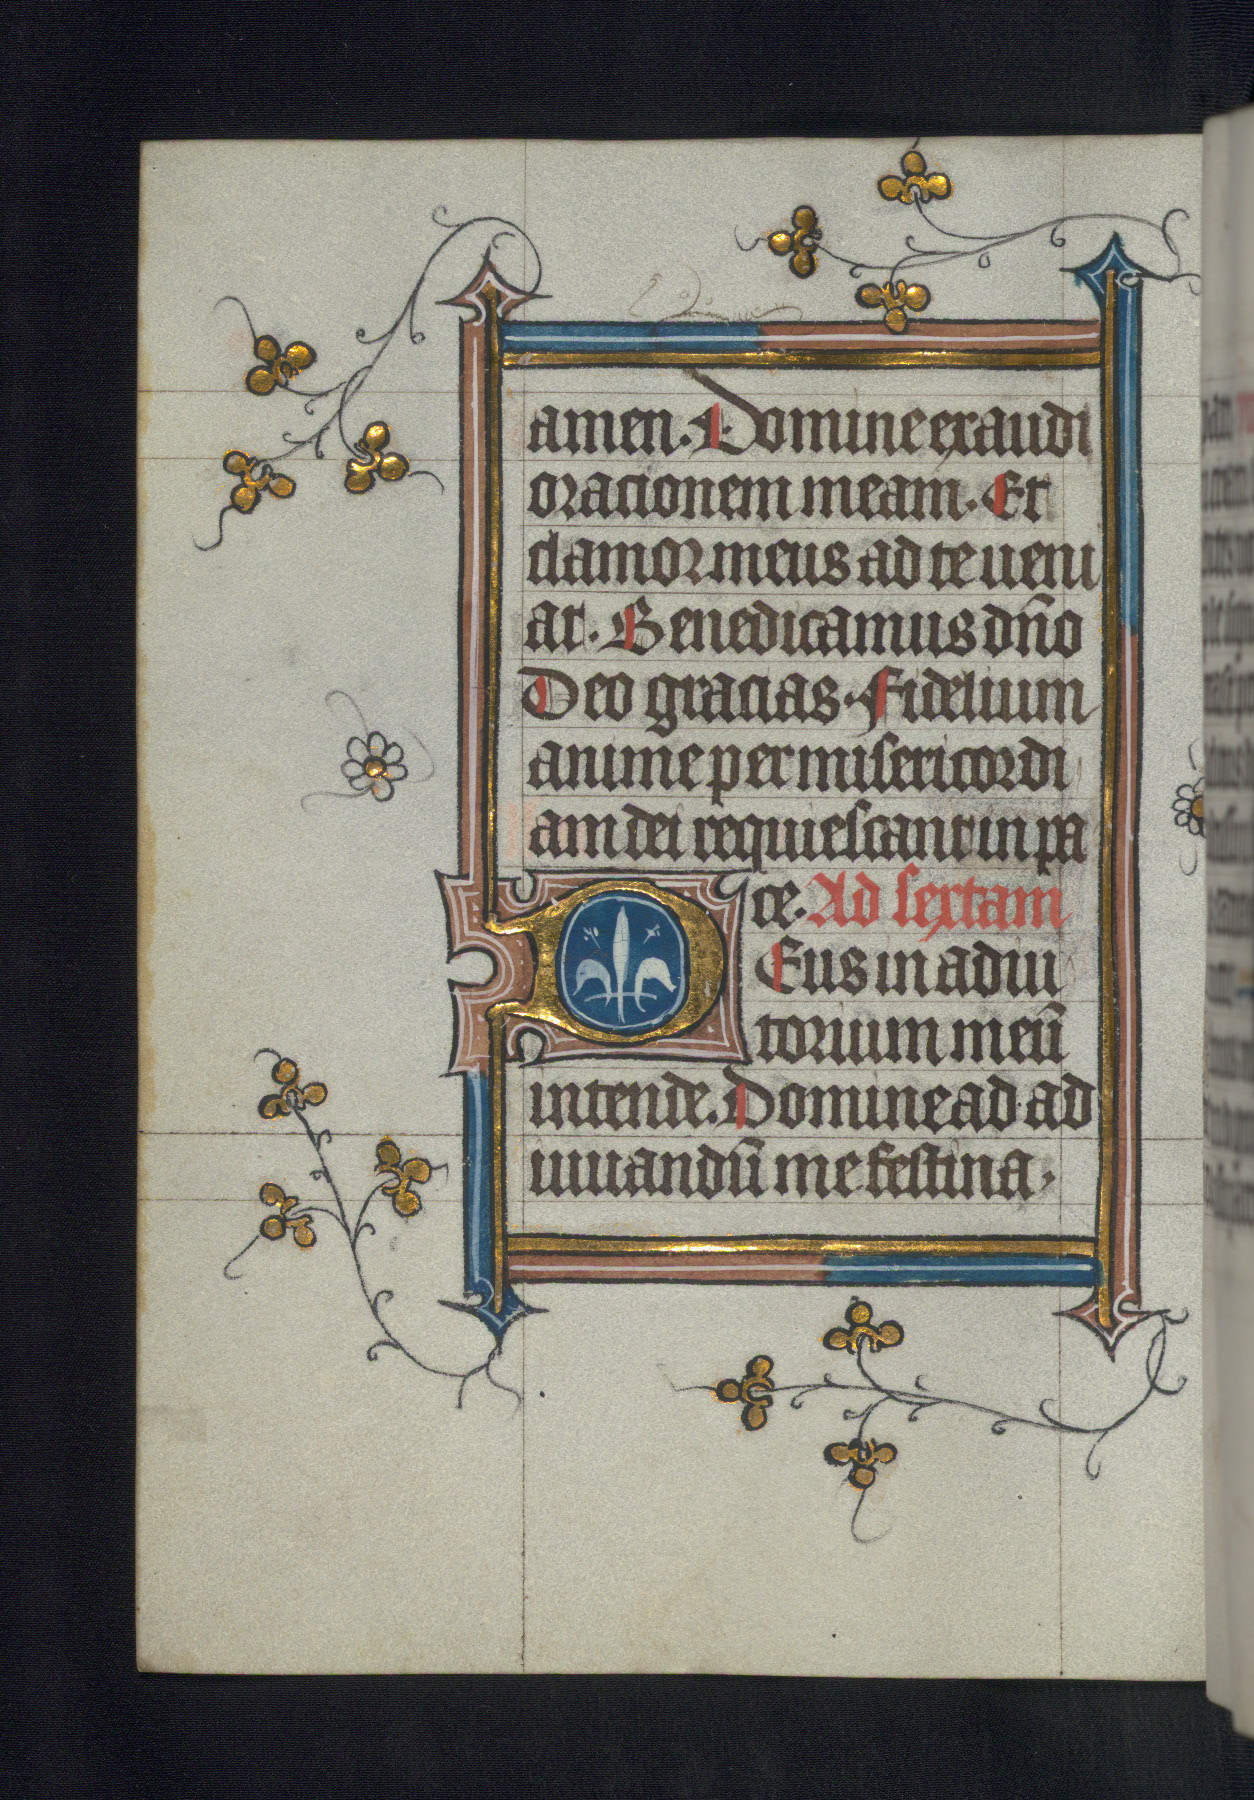 amen. Domine exaudi
oracionem meam. Et
clamor meus ad te ueni
at. Benedicamus dn̄o
Deo gracias. Fidelium
anime per misericordi
am dei requiescant in pa
ce. Ad sextam
Deus in adiu
torium meū
intende. Domine ad ad
iuuandū me festina.